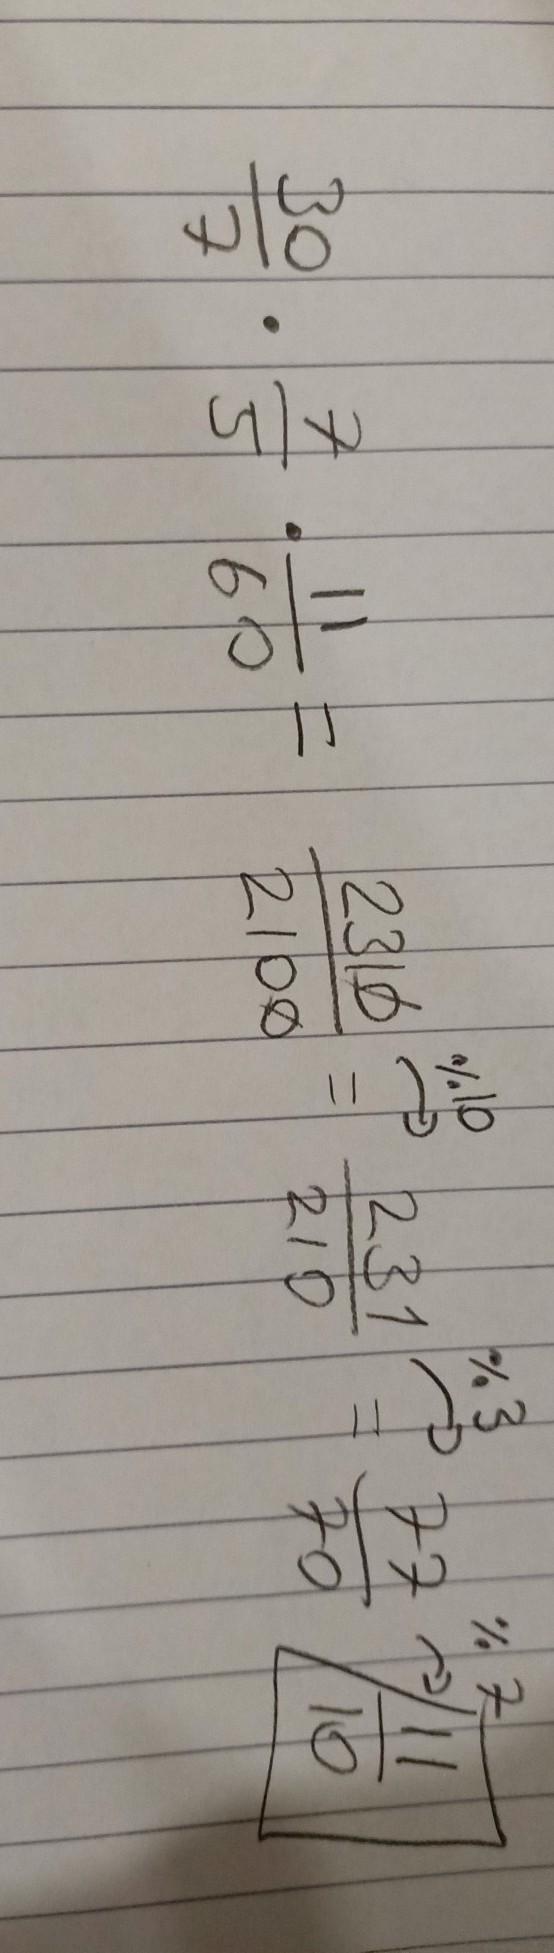 30/7 · 7/5 · 11/60 = 2310/2100 = %10 231/210 = %3 77/70 %7 11/10